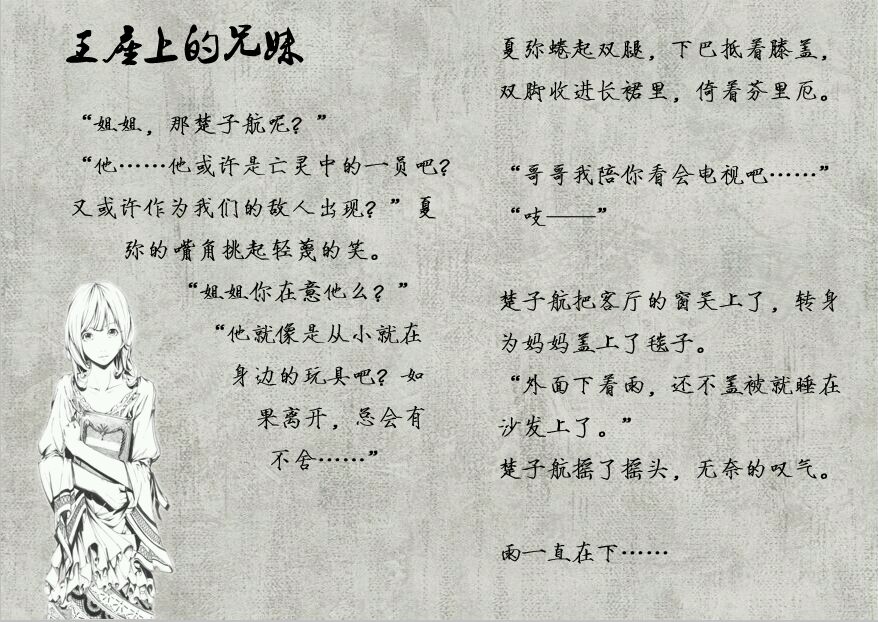 王座上的兄妹
“姐姐，那楚子航呢？”
“他……他或许是亡灵中的一员吧？
又或许作为我们的敌人出现？”夏
弥的嘴角挑起轻蔑的笑。
“姐姐你在意他么？”
“他就像是从小就在
身边的玩具吧？如
果离开，总会有
不舍……”
夏弥蜷起双腿，下巴抵着膝盖，
双脚收进长裙里，倚着芬里厄。
“哥哥我陪你看会电视吧……”
“吱——”
楚子航把客厅的窗关上了，转身
为妈妈盖上了毯子。
“外面下着雨，还不盖被就睡在
沙发上了。”
楚子航摇了摇头，无奈的叹气。
雨一直在下……